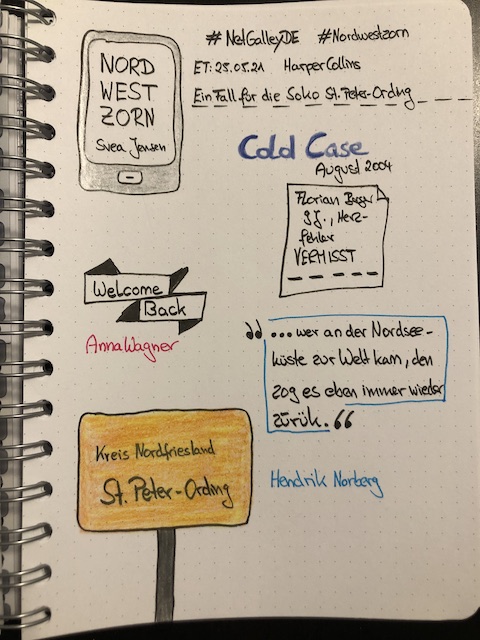 #NetGalleyDE #Nordwestzorn
ET: 25.05.21 HarperCollins
Ein Fall für die Soko St. Peter-Ording
NORD
WEST
ZORN
Svea Jensen
Cold Case
August 2004
Florian Berger
9 J., Herz-
fehler
VERMISST
Welcome
Back
Anna Wagner
"...wer an der Nordsee-
küste zur Welt kam, den
zog es eben immer wieder
zurück."
Hendrik Norberg
Kreis Nordfriesland
St. Peter-Ording